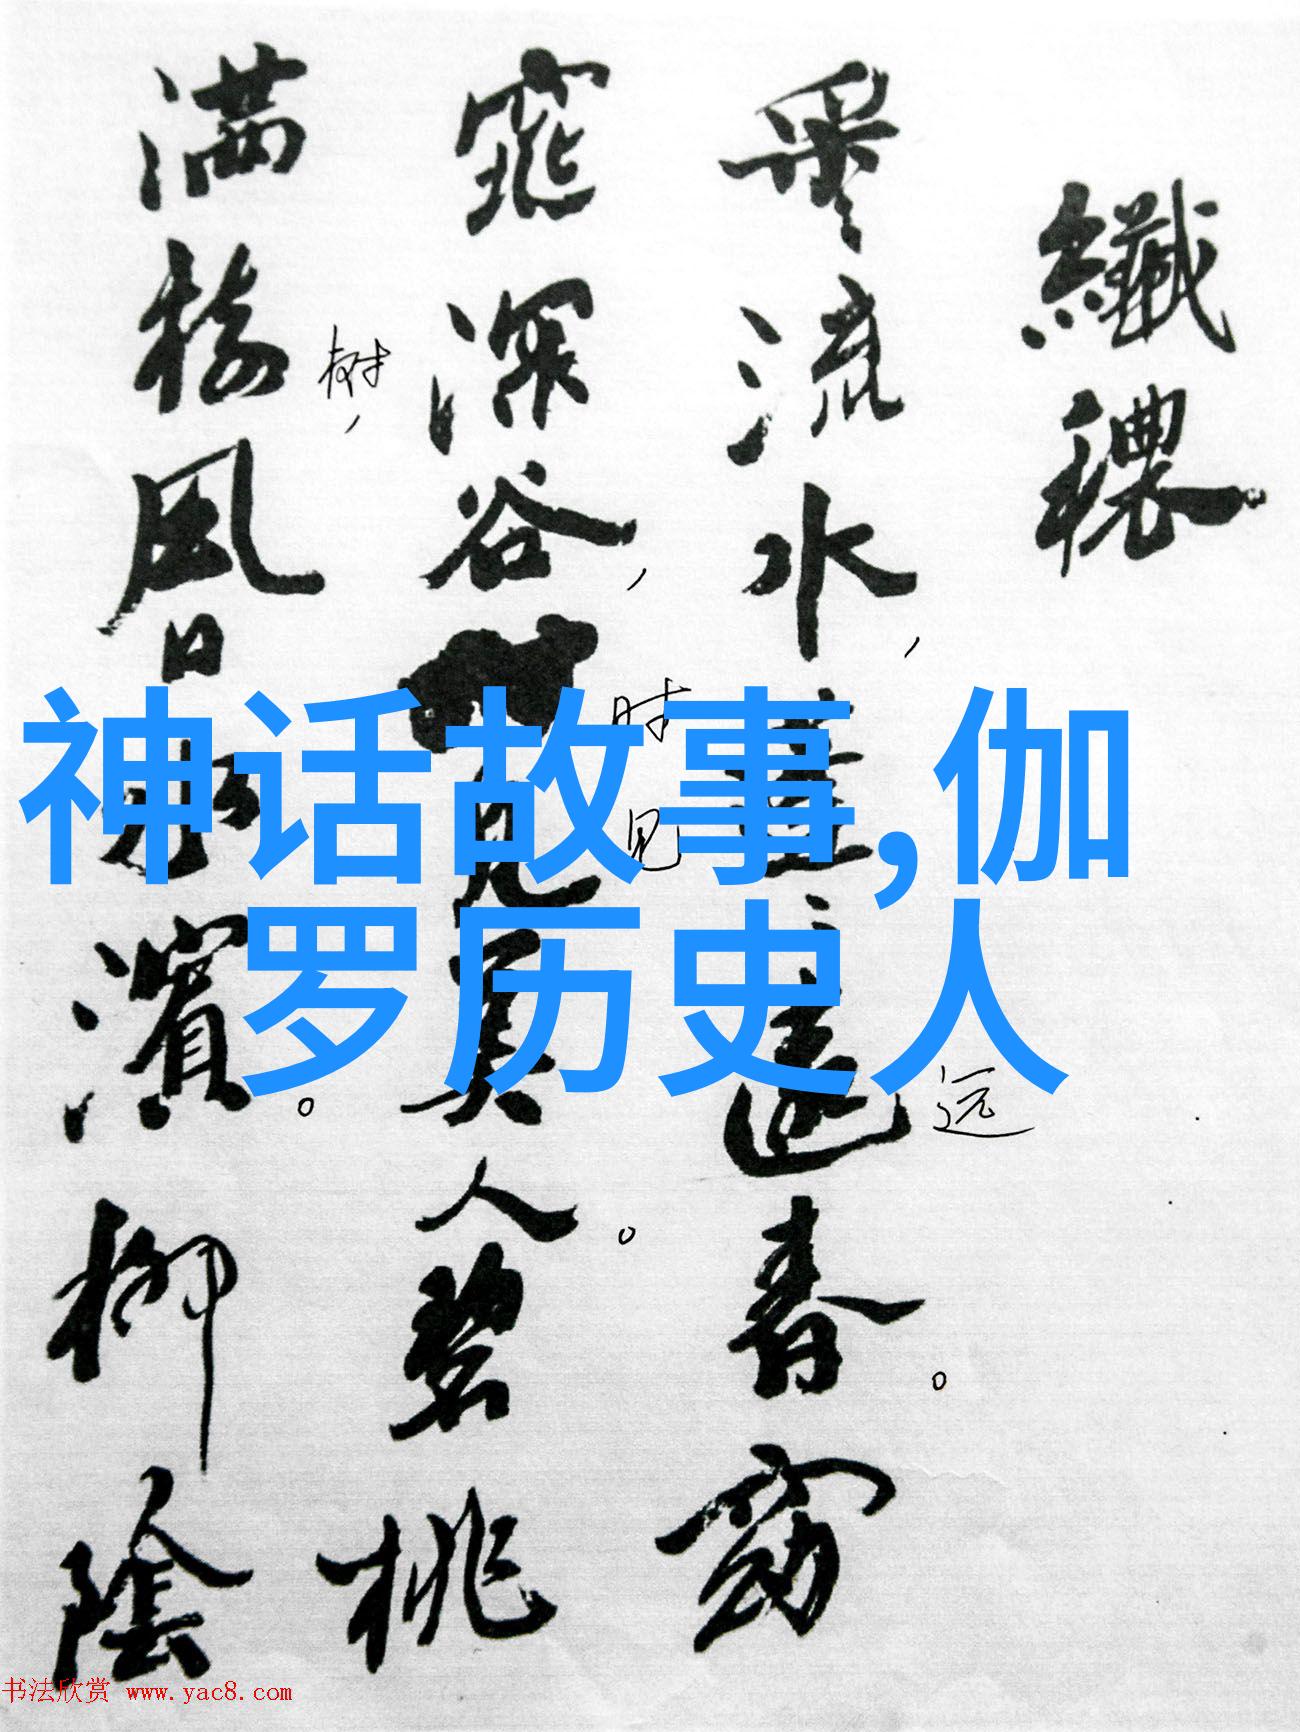 神话故事,伽
罗历史人
纖穠
采流水，遠春。窈
远
窕深谷，見美人。碧桃
时
见
满樹風日水濱。柳陰
树，
书法欣赏 www.yac8.com